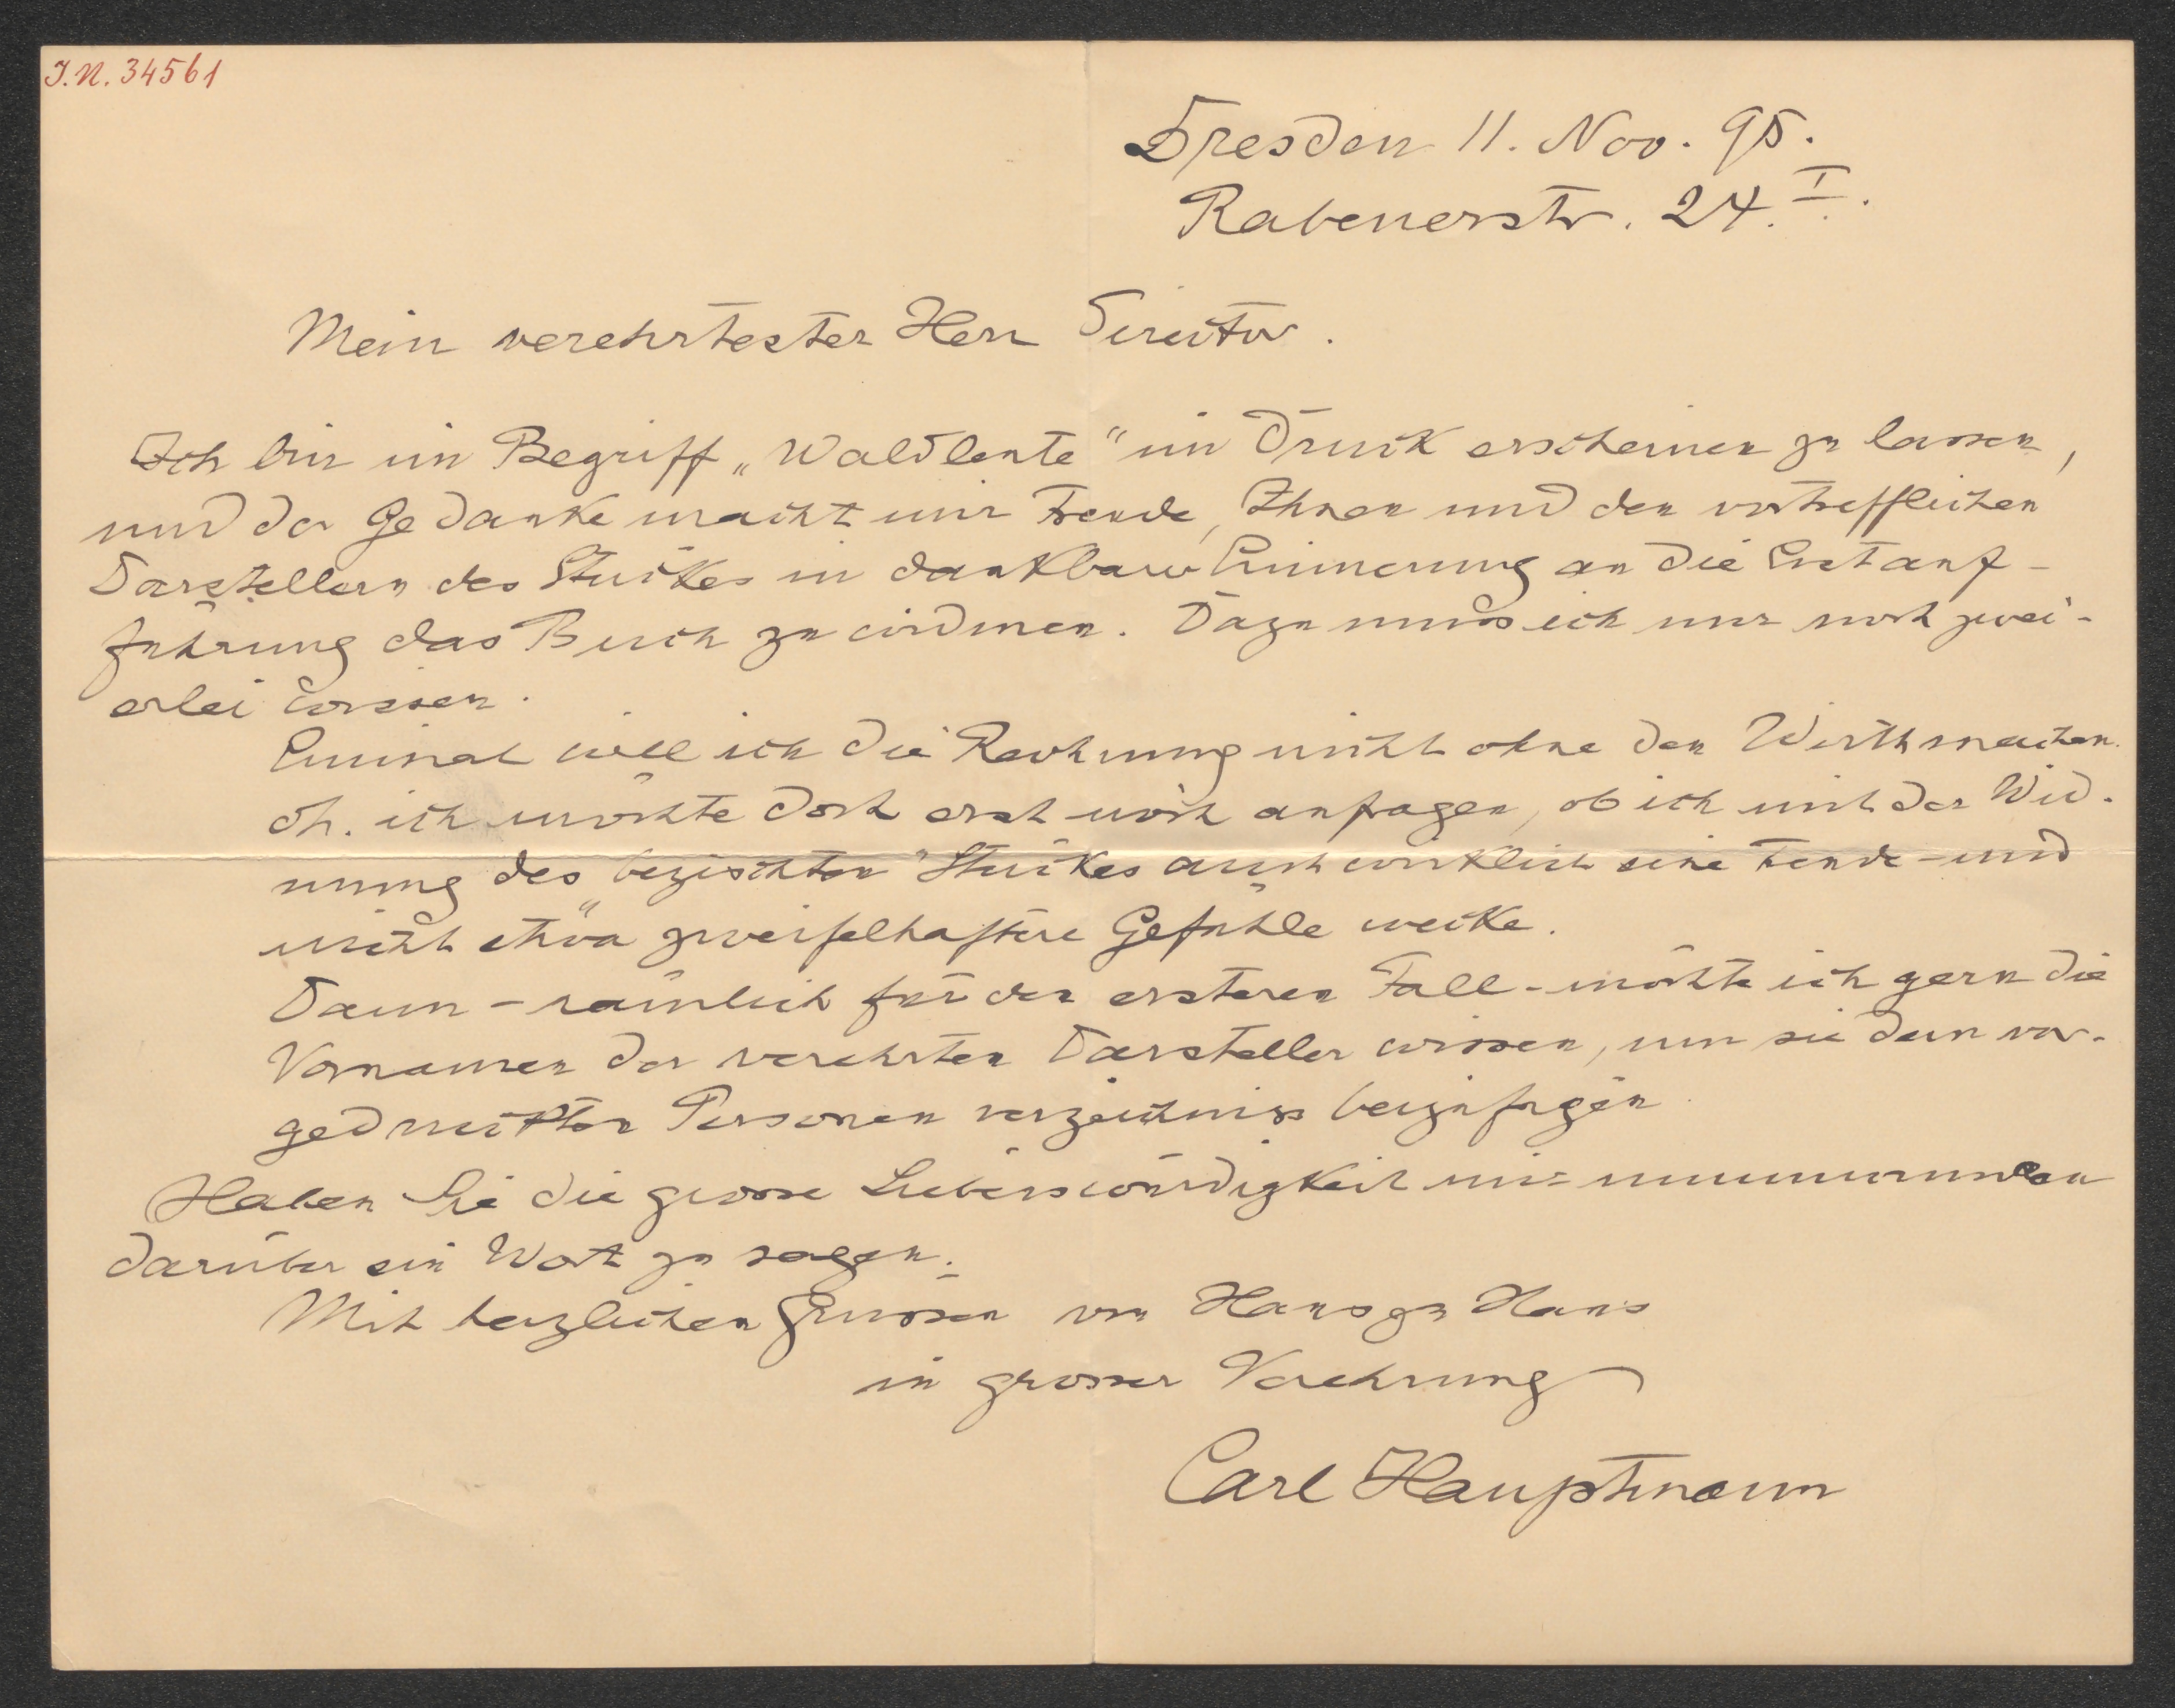 J.N. 34561
Dresden 11. Nov. 95.
Rabenerstr. 24. I.
Mein verehrtester Herr Director.
Ich bin im Begriff „Waldleute" im Druck erscheinen zu lassen,
und der Gedanke macht mir Freude, Ihnen und den vortrefflichen
Darstellern des Stückes in dankbarer Erinnerung an die Erstauf-
führung das Buch zu widmen. Dazu muss ich nur noch zwei-
erlei wissen.
Einmal will ich die Rechnung nicht ohne den Wirth machen.
dh. ich möchte doch erst noch anfragen, ob ich mit der Wid-
mung des „bezischten" Stückes auch wirklich eine Freude – und
nicht etwa zweifelhaftere Gefühle wecke.
Dann – nämlich für den ersteren Fall – möchte ich gern die
Vornamen der verehrten Darsteller wissen, um sie dem vor-
gedruckten Personenverzeichniss beizufügen.
Haben Sie die grosse Liebenswürdigkeit mir unumwunden
darüber ein Wort zu sagen.
Mit herzlichen Grüssen von Haus zu Haus
in grosser Verehrung
Carl Hauptmann